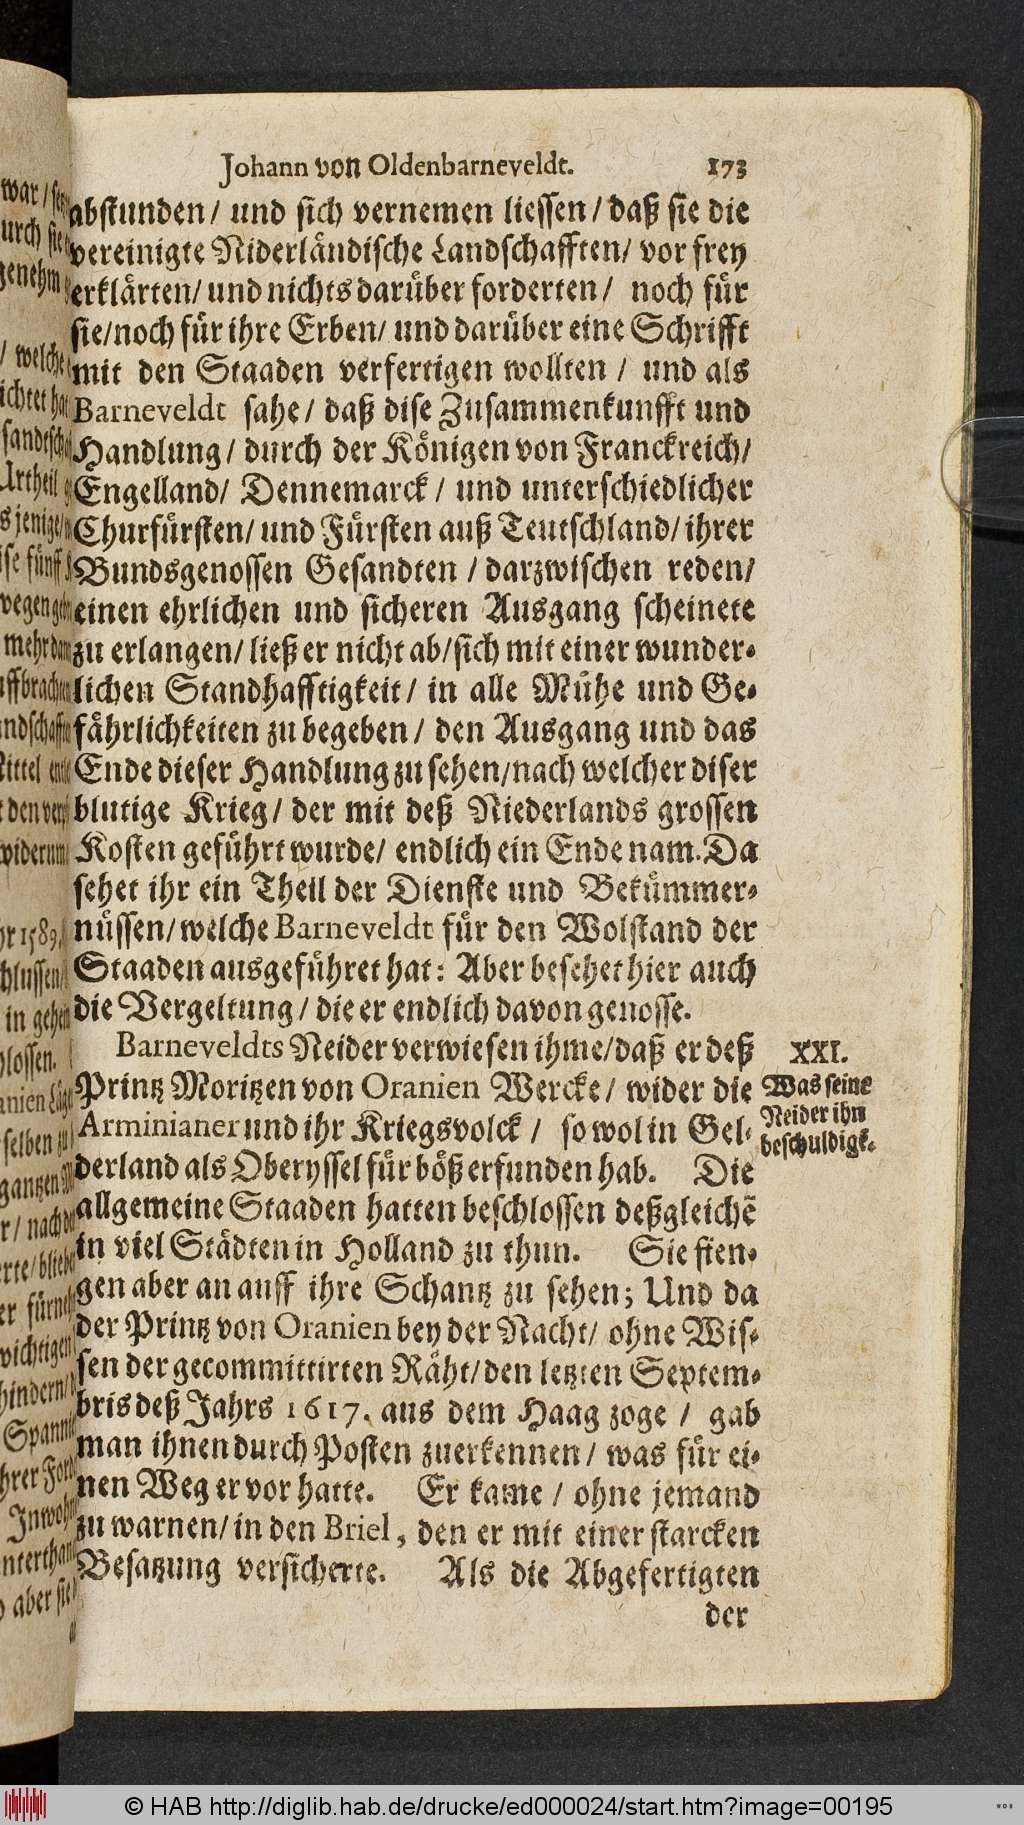 Johann von Oldenbarneveldt. 173
abstunden/ und sich vernemen liessen/ daß sie die
vereinigte Niderländische Landschafften/ vor frey
erklärten/ und nichts darüber forderten/ noch für
sie/ noch für ihre Erben/ und darüber eine Schrifft
mit den Staaden verfertigen wollten / und als
Barneveldt sahe/ daß dise Zusammenkunfft und
Handlung/ durch der Königen von Franckreich/
Engelland/ Dennemarck/ und unterschiedlicher
Churfürsten/ und Fürsten auß Teutschland/ ihrer
Bundsgenossen Gesandten / darzwischen reden/
einen ehrlichen und sicheren Ausgang scheinete
zu erlangen/ ließ er nicht ab/ sich mit einer wunder-
lichen Standhafftigkeit/ in alle Mühe und Ge-
fährlichkeiten zu begeben/ den Ausgang und das
Ende dieser Handlung zu sehen/ nach welcher diser
blutige Krieg/ der mit deß Niederlands grossen
Kosten geführt wurde/ endlich ein Ende nam. Da
sehet ihr ein Theil der Dienste und Bekümmer-
nüssen/ welche Barneveldt für den Wolstand der
Staaden ausgeführet hat: Aber besehet hier auch
die Vergeltung/ die er endlich davon genosse.
Barneveldts Neider verwiesen ihme/ daß er deß
Printz Moritzen von Oranien Wercke/ wider die
Arminianer und ihr Kriegsvolck / so wol in Gel-
derland als Oberyssel für böß erfunden hab. Die
allgemeine Staaden hatten beschlossen deßgleichẽ
in viel Städten in Holland zu thun. Sie fien-
gen aber an auff ihre Schantz zu sehen; Und da
der Printz von Oranien bey der Nacht/ ohne Wis-
sen der gecommittirten Räht/ den letzten Septem-
bris deß Jahrs 1617. aus dem Haag zoge / gab
man ihnen durch Posten zuerkennen/ was für ei-
nen Weg er vor hatte. Er kame / ohne jemand
zu warnen/ in den Briel, den er mit einer starcken
Besatzung versicherte. Als die Abgefertigten
der
XXI.
Was seine
Neider ihn
beschuldigt.
© HAB http://diglib.hab.de/drucke/ed000024/start.htm?image=00195